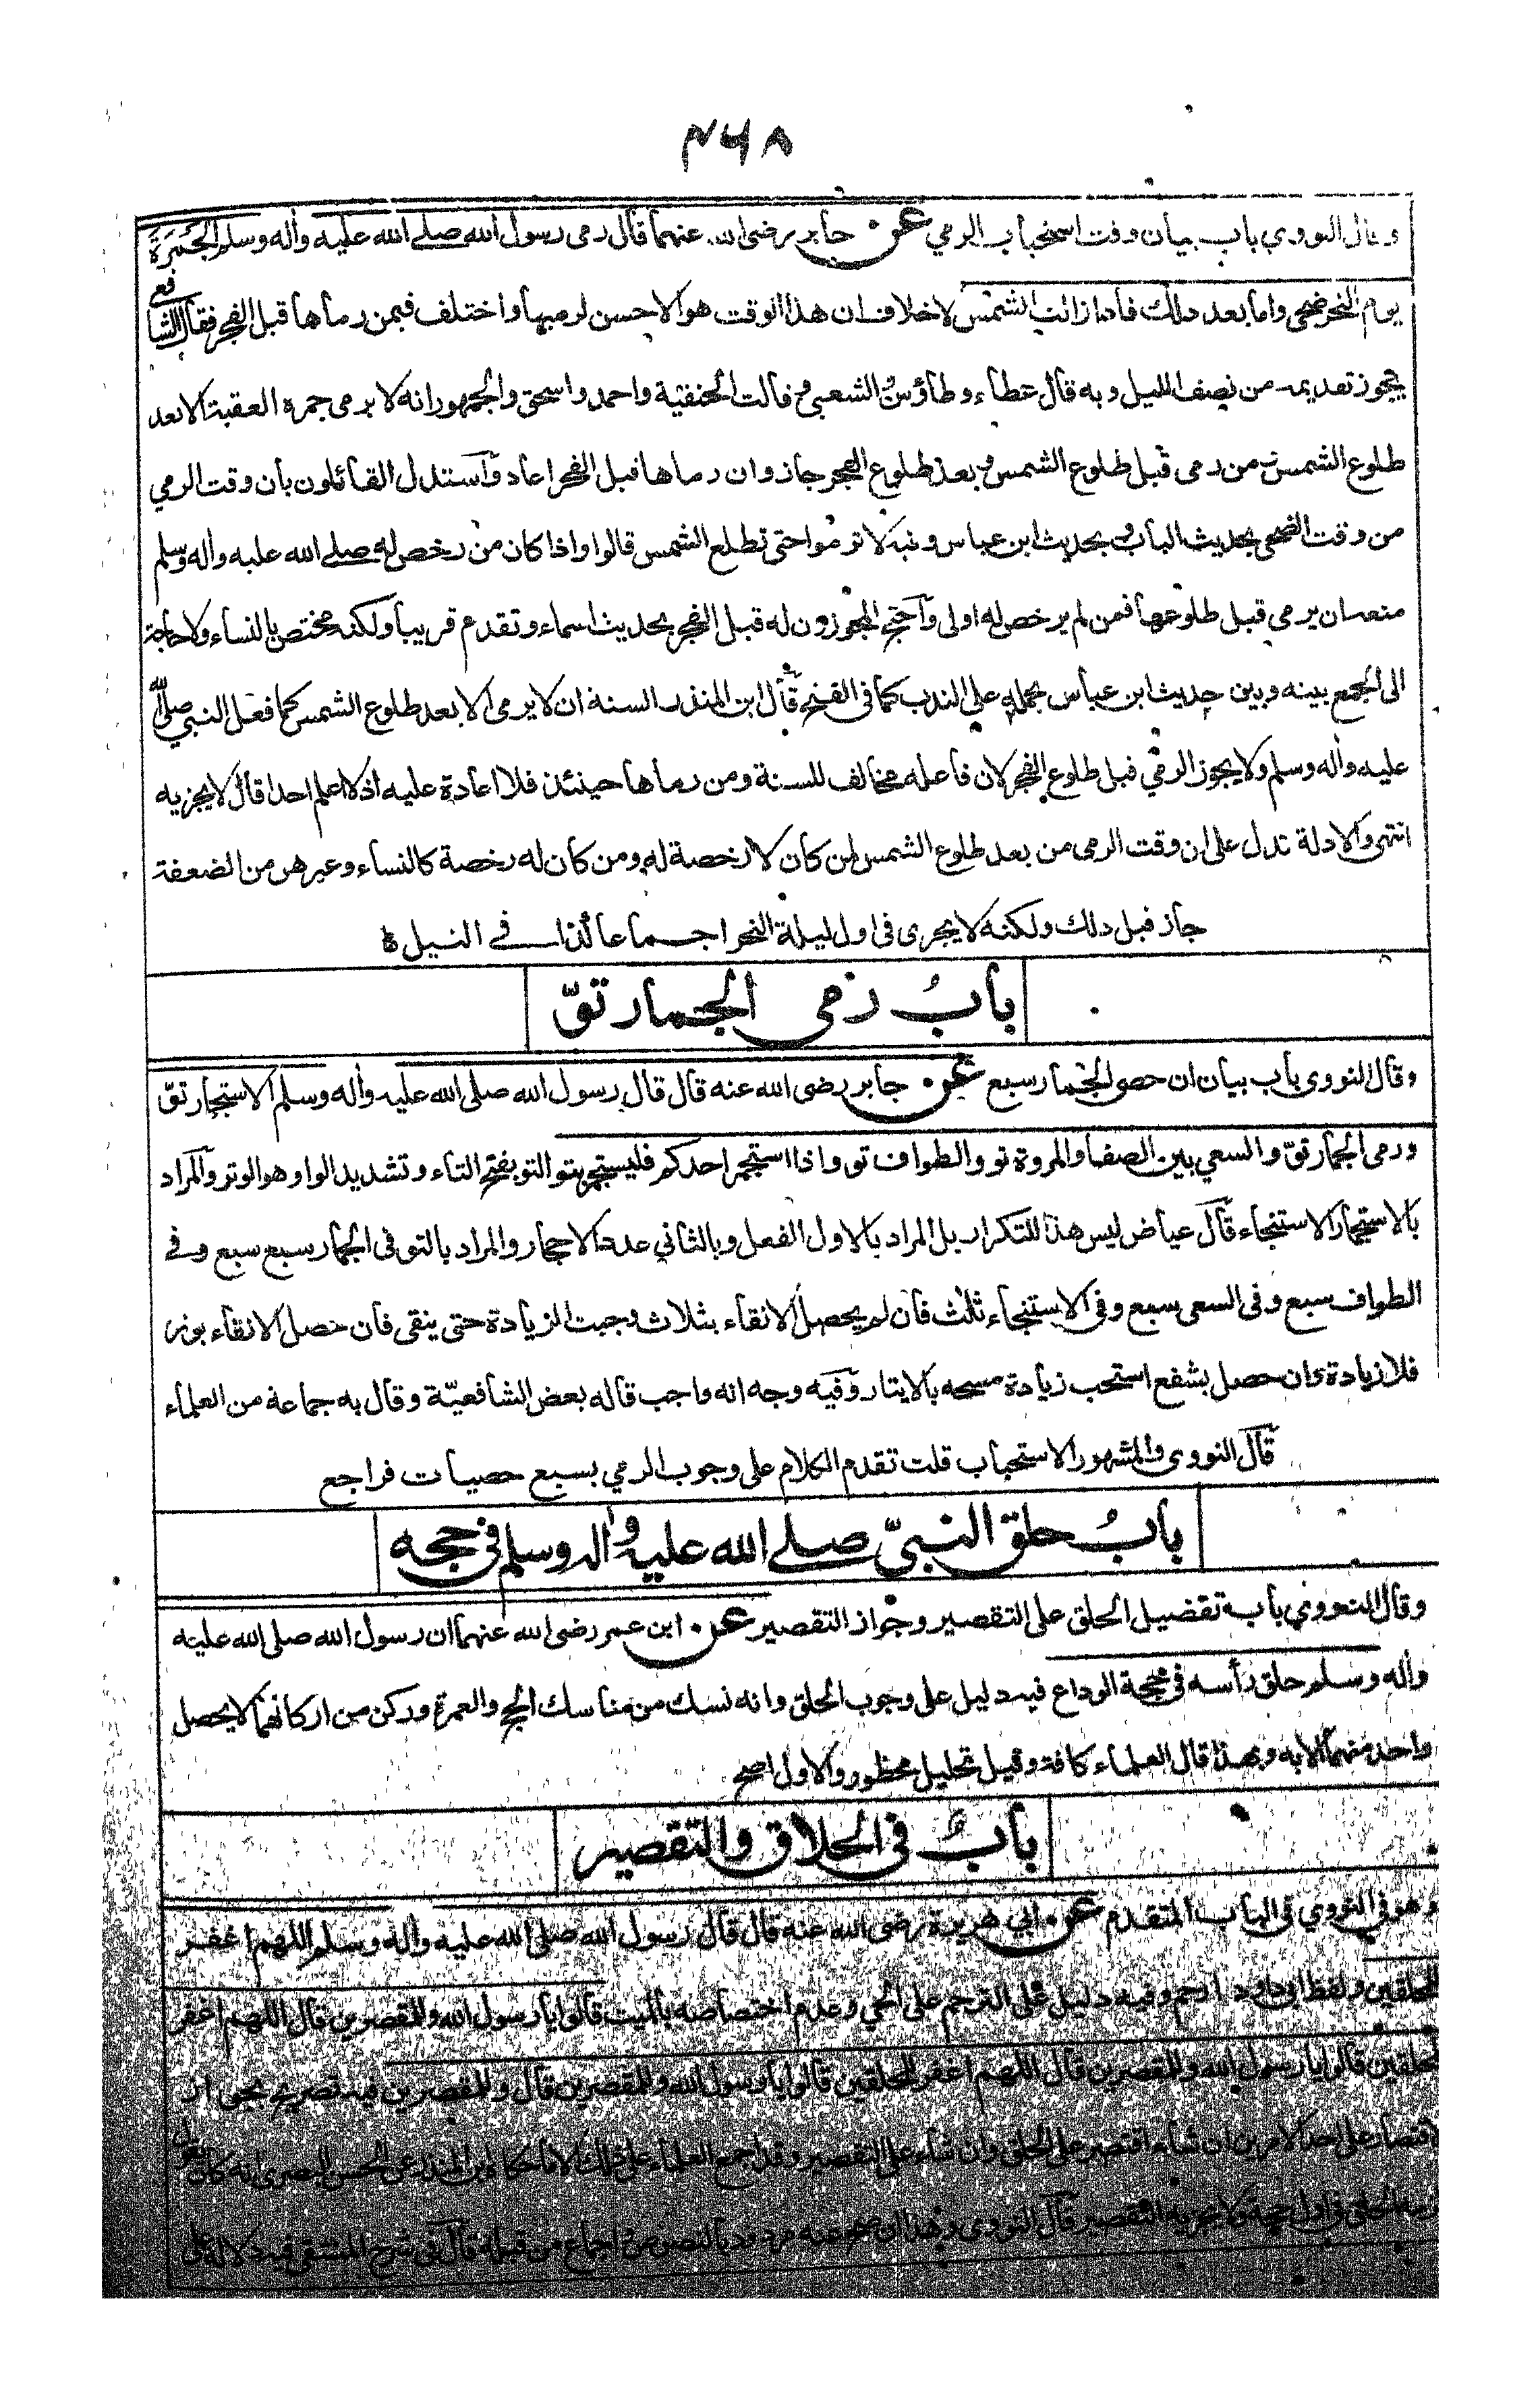 ۴۶۸
وقال النووي باب بيان وقت استحباب الرمي عن جابر رضي الله عنهما قال رمى رسول الله صلى الله عليه وأله وسلم الجمرة
يوم النحر ضحى واما بعد ذلك فاذا زالت الشمس لاخلاف ان هذا الوقت هو الاحسن لرميها واختلف فيمن رماها قبل الفجر فقال الشافعي
يجوز تقديمه من نصف الليل وبه قال عطاء وطاؤس والشعبي وقالت الحنفية واحمد واسحق والجمهور انه لا يرمى جمرة العقبة الا بعد
طلوع الشمس ومن رمى قبل طلوع الشمس وبعد طلوع الفجر جاز وان رماها قبل الفجر اعاد واستدل القائلون بأن وقت الرمي
من وقت الضحى بحديث الباب وبحديث ابن عباس وفيه لا ترموا حتى تطلع الشمس قالوا واذا كان من رخص له صلى الله عليه وأله وسلم
منعه ان يرمي قبل طلوعها فمن لم يرخص له اولى واحتج المجوزون له قبل الفجر بحديث اسماء وتقدم قريبا ولكنه مختص بالنساء ولا حاجة
الى الجمع بينه وبين حديث ابن عباس بحمله على الندب كما في الفتح قال ابن المنذر السنة ان لا يرمى الا بعد طلوع الشمس كما فعل النبي صلى الله
عليه وأله وسلم ولا يجوز الرمي قبل طلوع الفجر لان فاعله مخالف للسنة ومن رماها حينئذ فلا اعادة عليه اذ لا اعلم احدا قال لا يجزيه
انتهى والادلة تدل على ان وقت الرمى من بعد طلوع الشمس لمن كان لا رخصة له ومن كان له رخصة كالنساء وغيرهن من الضعفة
جاز قبل ذلك ولكنه لا يجزى في اول ليلة النحر اجماعا كذا في النيل
باب رمى الجمار توّ
وقال النووي باب بيان ان حصى الجمار سبع عن جابر رضى الله عنه قال قال رسول الله صلى الله عليه وأله وسلم الاستجمار توّ
ورمى الجمار توّ والسعي بين الصفا والمروة تو والطواف تو واذا استجمر احدكم فليستجمر بتو التو بفتح التاء وتشديد الواو هو الوتر والمراد
بالاستجمار الاستنجاء قال عياض ليس هذا للتكرار بل المراد بالاول الفعل وبالثاني عدد الاحجار والمراد بالتو في الجمار سبع سبع وفي
الطواف سبع وفى السعى سبع وفي الاستنجاء ثلث فان لم يحصل الانقاء بثلاث وجبت الزيادة حتى ينقى فان حصل الانقاء بوتر
فلا زيادة وان حصل بشفع استحب زيادة مسحه بالايتار وفيه وجه انه واجب قاله بعض الشافعيّة وقال به جماعة من العلماء
قال النووى والمشهور الاستحباب قلت تقدم الكلام على وجوب الرمي بسبع حصيات فراجع
باب حلق النبيّ صلى الله عليه وأله وسلم في حجه
وقال النووي باب تفضيل الحلق على التقصير وجواز التقصير عن ابن عمر رضى الله عنهما ان رسول الله صلى الله عليه
وأله وسلم حلق رأسه في حجة الوداع فيه دليل على وجوب الحلق وانه نسك من مناسك الحج والعمرة وركن من اركانهما لا يحصل
واحد منهما الا به وبهذا قال العلماء كافة وقيل تحليل محظور والاول اصح
باب في الحلاق والتقصير
وهو في النووي في الباب المتقدم عن ابي هريرة رضى الله عنه قال قال رسول الله صلى الله عليه وأله وسلم اللهم اغفر
للمحلقين ولفظ ابي داود ارحم وفيه دليل على الترحم على الحي وعدم اختصاصه بالميت قالوا يا رسول الله وللمقصرين قال اللهم اغفر
للمحلقين قالوا يا رسول الله وللمقصرين قال اللهم اغفر للمحلقين قالوا يا رسول الله وللمقصرين قال وللمقصرين فيه تصريح بجواز
الاقتصار على احد الامرين ان شاء اقتصر على الحلق وان شاء على التقصير وقد اجمع العلماء على ذلك الا ما حكاه ابن المنذر عن الحسن البصري انه كان يقول
الحلق في اول حجة ولا يجزيه التقصير قال النووى وهذا ان صح عنه مردود بالنصوص واجماع من قبله قال في شرح المنتقى فيه دلالة على